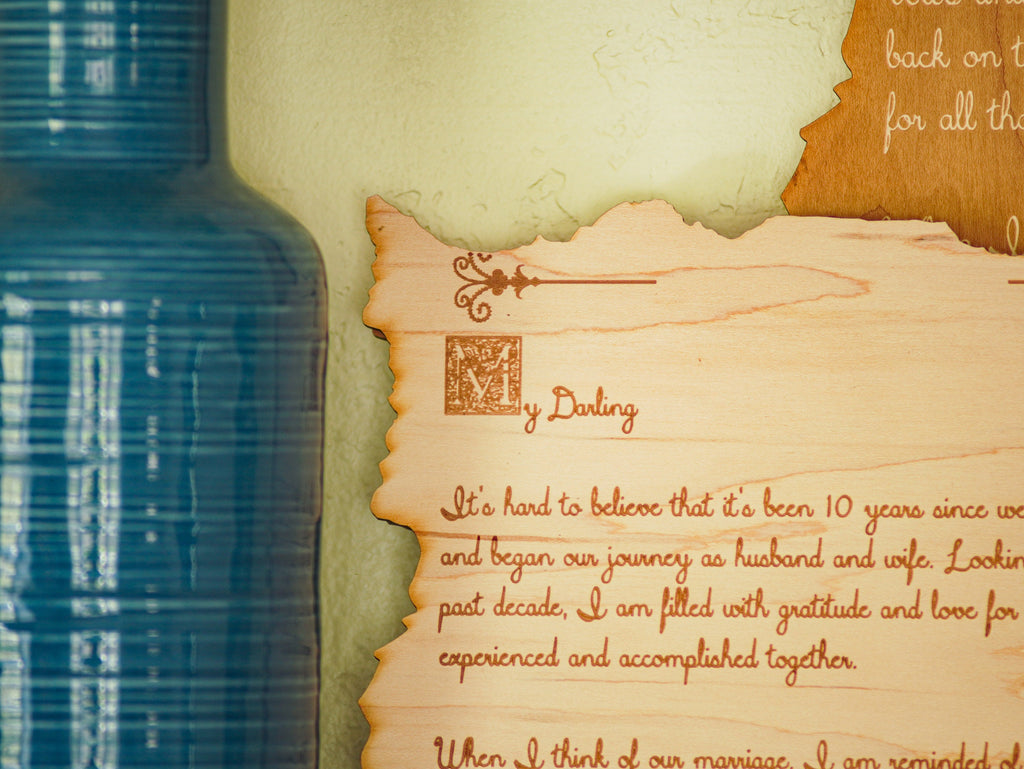 back on
for all
My Darling
It's hard to believe that it's been 10 years since we
and began our journey as husband and wife.
past decade, I am filled with gratitude and love for
experienced and accomplished together.
When I think of our marriage, I am reminded of